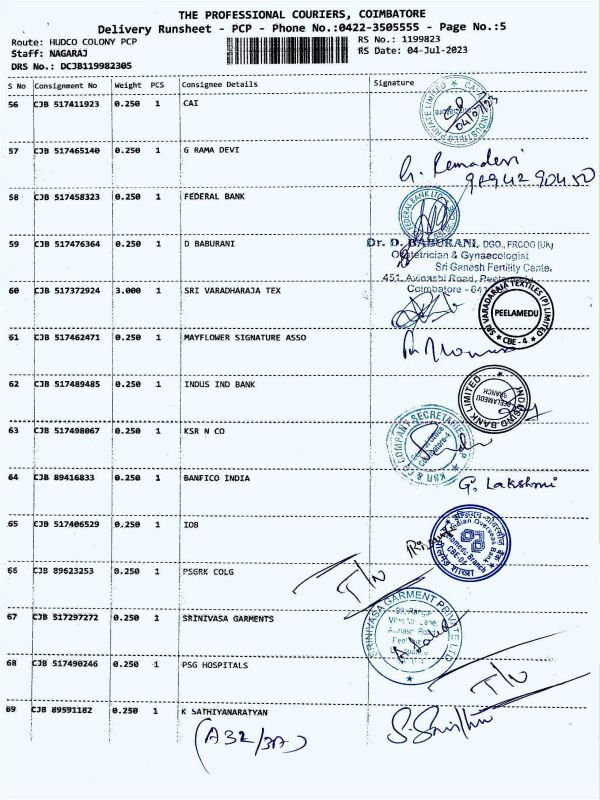 THE PROFESSIONAL COURIERS, COIMBATORE
Delivery Runsheet - PCP - Phone No.:0422-3505555 - Page No.:5
Route: HUDCO COLONY PCP
RS No.: 1199823
Staff: NAGARAJ
RS Date: 04-Jul-2023
DRS No.: DCJB119982305
S No Consignment No Weight PCS Consignee Details Signature
56 CJB 517411923 0.250 1 CAI
04/07/23
57 CJB 517465140 0.250 1 G RAMA DEVI
G. Ramadevi
98942 90450
58 CJB 517458323 0.250 1 FEDERAL BANK
59 CJB 517476364 0.250 1 D BABURANI
Dr. D. BABURANI, DGO., FRCOG (UK)
Obstetrician & Gynaecologist
Sri Ganesh Fertility Centre
451, Avinashi Road,
Coimbatore - 641
60 CJB 517372924 3.000 1 SRI VARADHARAJA TEX
SRI VARADARAJA TEXTILES (P) LIMITED
PEELAMEDU
CBE - 4
61 CJB 517462471 1 MAYFLOWER SIGNATURE ASSO
62 CJB 517489485 0.250 1 INDUS IND BANK
INDUSIND BANK LIMITED
PEELAMEDU
BRANCH
63 CJB 517498067 0.250 1 KSR N CO
KSR & CO COMPANY SECRETARIES
Coimbatore-4
64 CJB 89416833 0.250 1 BANFICO INDIA
G. Lakshmi
65 CJB 517406529 0.250 1 IOB
Indian Overseas Bank
Branch
66 CJB 89623253 0.250 1 PSGRK COLG
T/N
67 CJB 517297272 0.250 1 SRINIVASA GARMENTS
SRINIVASA GARMENT PRIVATE LTD
68 CJB 517490246 0.250 1 PSG HOSPITALS
T/N
69 CJB 89591182 0.250 1 K SATHIYANARATYAN
(A32/3A)